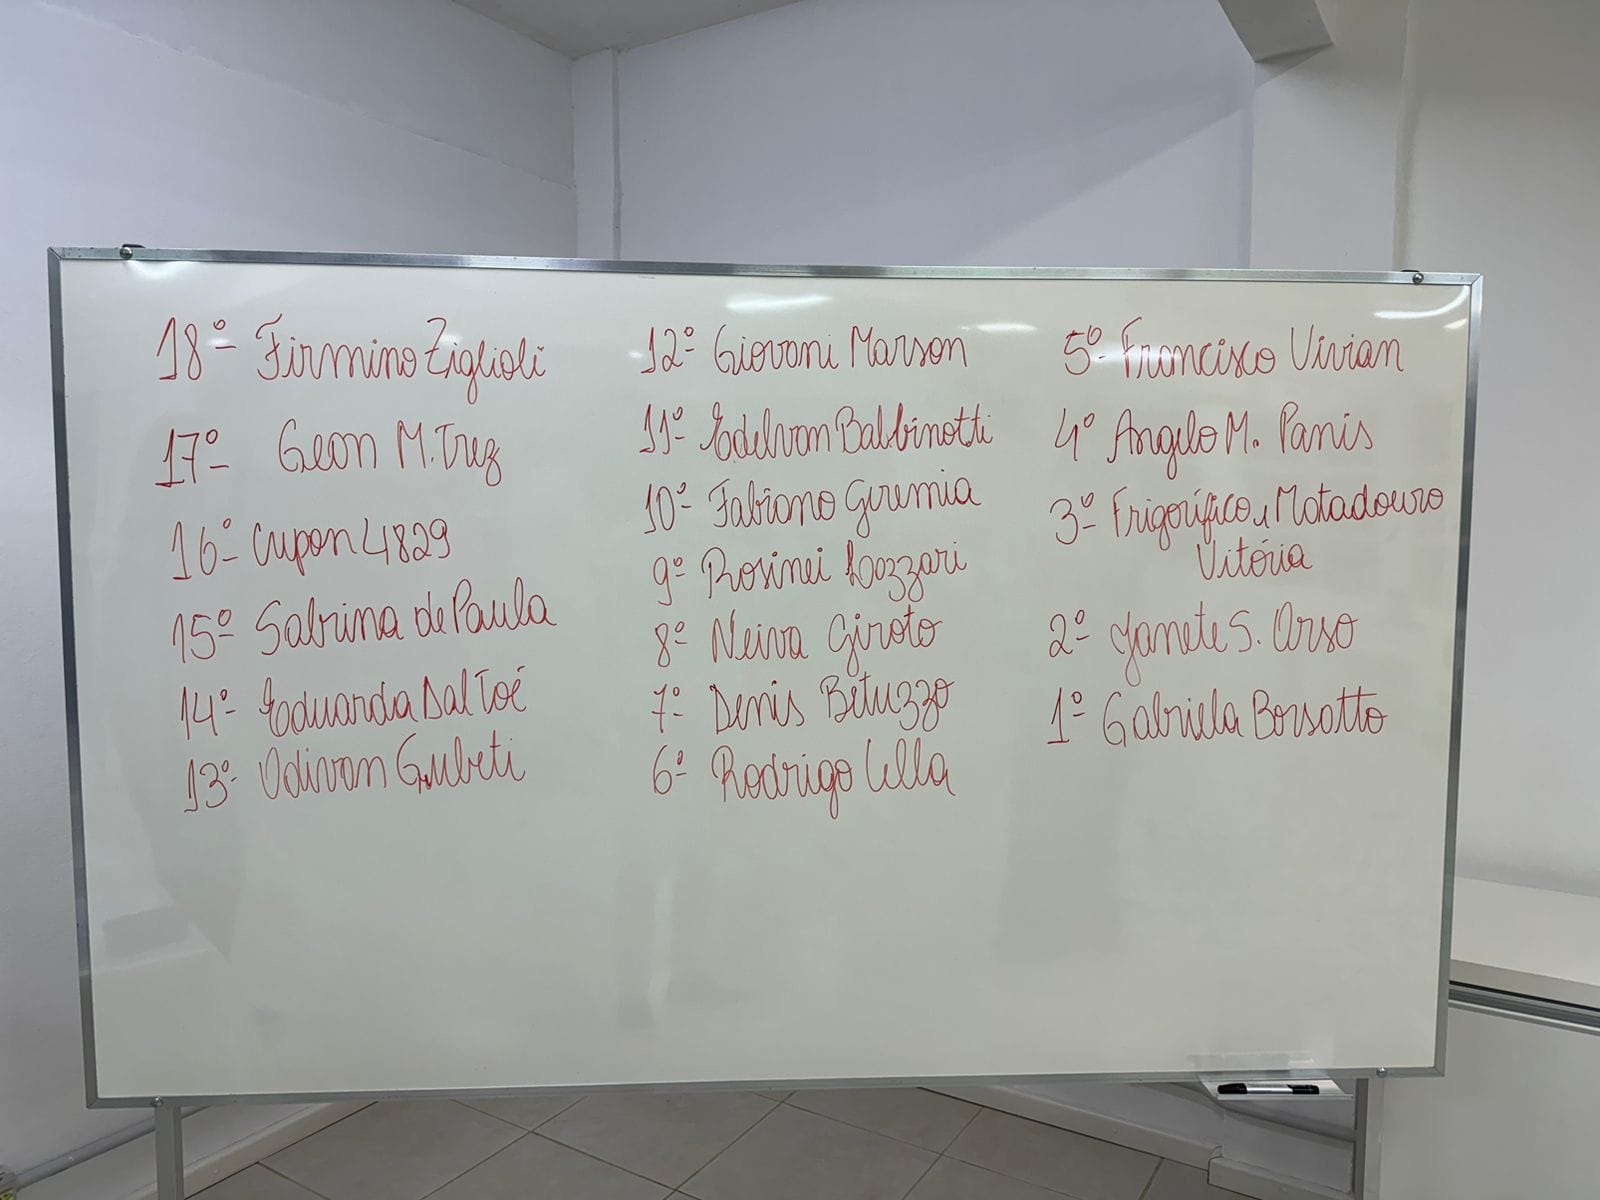 18º- Firmino Ziglioli
17º- Geon M. Trez
16º- Cupon 4829
15º- Sabrina de Paula
14º- Eduarda Dal Toé
13º- Odivan Gubeti
12º- Giovani Marson
11º- Edelvan Balbinotti
10º- Fabiano Geremia
9º- Rosinei Lozzari
8º- Neiva Giroto
7º- Denis Betuzzo
6º- Rodrigo Cella
5º- Francisco Vivian
4º Angelo M. Panis
3º- Frigorífico e Matadouro
Vitória
2º- Janete S. Orso
1º- Gabriela Borsatto